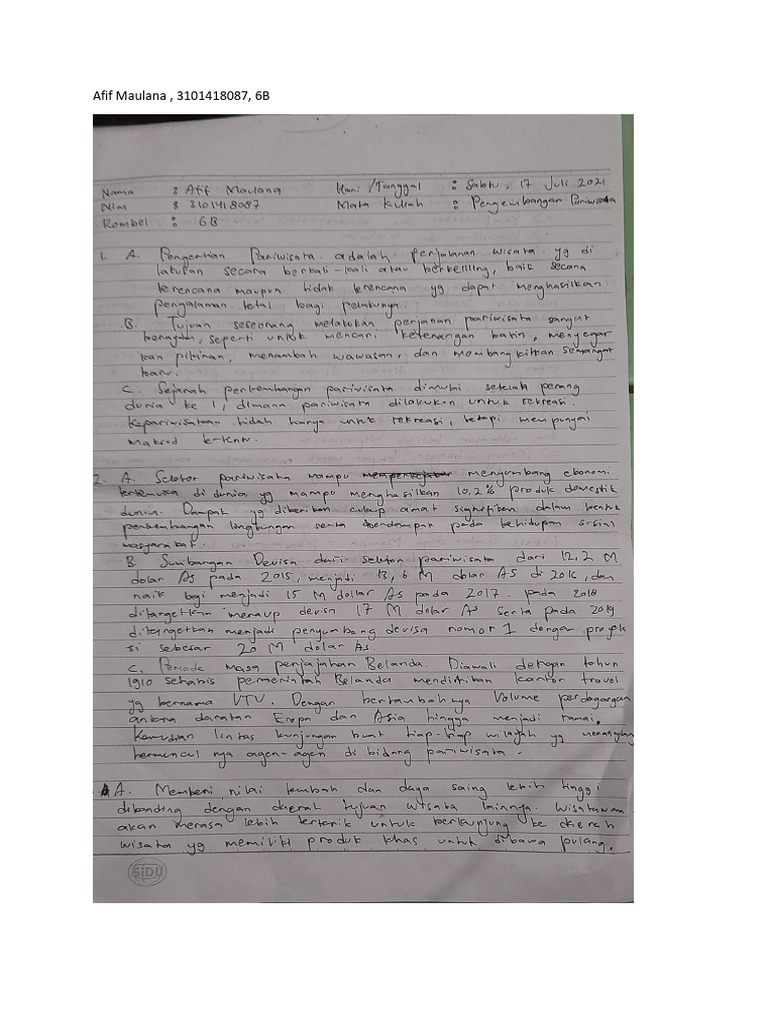 Afif Maulana , 3101418087, 6B
Nama : Afif Maulana Hari /Tanggal : Sabtu, 17 Juli 2021
NIM : 3101418087 Mata Kuliah : Pengembangan Pariwisata
Rombel : 6B
1. A. Pengertian Pariwisata adalah perjalanan wisata yg di
lakukan secara berkali-kali atau berkeliling, baik secara
terencana maupun tidak terencana yg dapat menghasilkan
pengalaman total bagi pelakunya.
B. Tujuan seseorang melakukan perjanan pariwisata sangat
beragam, seperti untuk mencari ketenangan batin, menyegar
kan pikiran, menambah wawasan, dan membangkitkan semangat
baru.
C. Sejarah perkembangan pariwisata dimulai setelah perang
dunia ke 1, dimana pariwisata dilakukan untuk rekreasi.
Kepariwisataan tidah hanya untuk rekreasi, tetapi mempunyai
maksud
2. A. Sektor pariwisata mampu menyumbang ekonomi
terkemuka di dunia yg mampu menghasilkan 10.2% produk domestik
dunia. Dampak yg diberikan cukup amat signifikan dalam bentuk
perkembangan lingkungan serta berdampak pada kehidupan sosial
masyarakat.
B. Sumbangan Devisa dari sektor pariwisata dari 12,2 M
dolar As pada 2015, menjadi 13,6 M dolar AS di 2016, dan
naik lagi menjadi 15 M dollar As pada 2017. pada 2018
ditargetkan meraup devisa 17 M dolar As serta pada 2019
ditargetkan menjadi penyumbang devisa nomor 1 dengan proyek
si sebesar 20 M dolar As.
C. Periode Masa penjajahan Belanda. Diawali dengan tahun
1910 sehabis pemerintah Belanda mendirikan kantor travol
yg bernama VTV. Dengan bertambahnya Volume perdagangan
antara daratan Eropa dan Asia hingga menjadi ramai.
Kemudian lintas kunjungan buat tiap-tiap wilayah yg
bermuncul nya agen-agen di bidang pariwisata.
A. Memberi nilai tembah dan daya saing lebih tinggi
dibanding dengan daerah tujuan wisata lainnya. Wisatawan
akan merasa lebih tertarik untuk berkunjung ke daerah
wisata yg memiliki produk khas untuk dibawa pulang.
SiDU